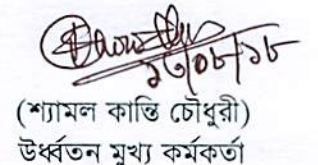 ১৩/০৮/১৮
(শ্যামল কান্তি চৌধুরী)
উর্ধ্বতন মুখ্য কর্মকর্তা